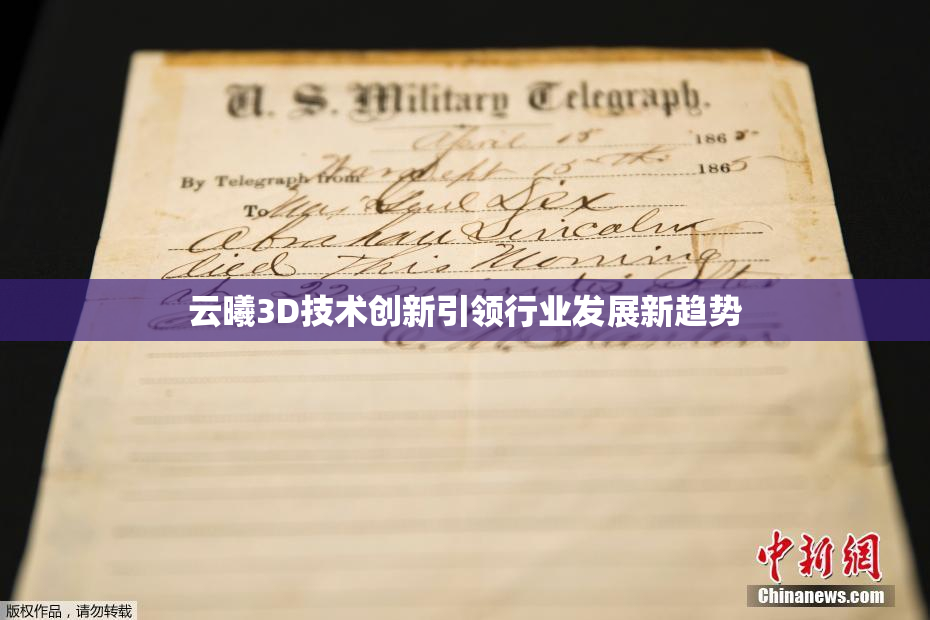 U. S. Military Telegraph.
April 15 1865
By Telegraph from War Dept 15th 1865
To Maj Genl Dix
Abraham Lincoln
died This Morning
at 22 minutes after
云曦3D技术创新引领行业发展新趋势
E. M. Stanton
中新网
Chinanews.com
版权作品，请勿转载